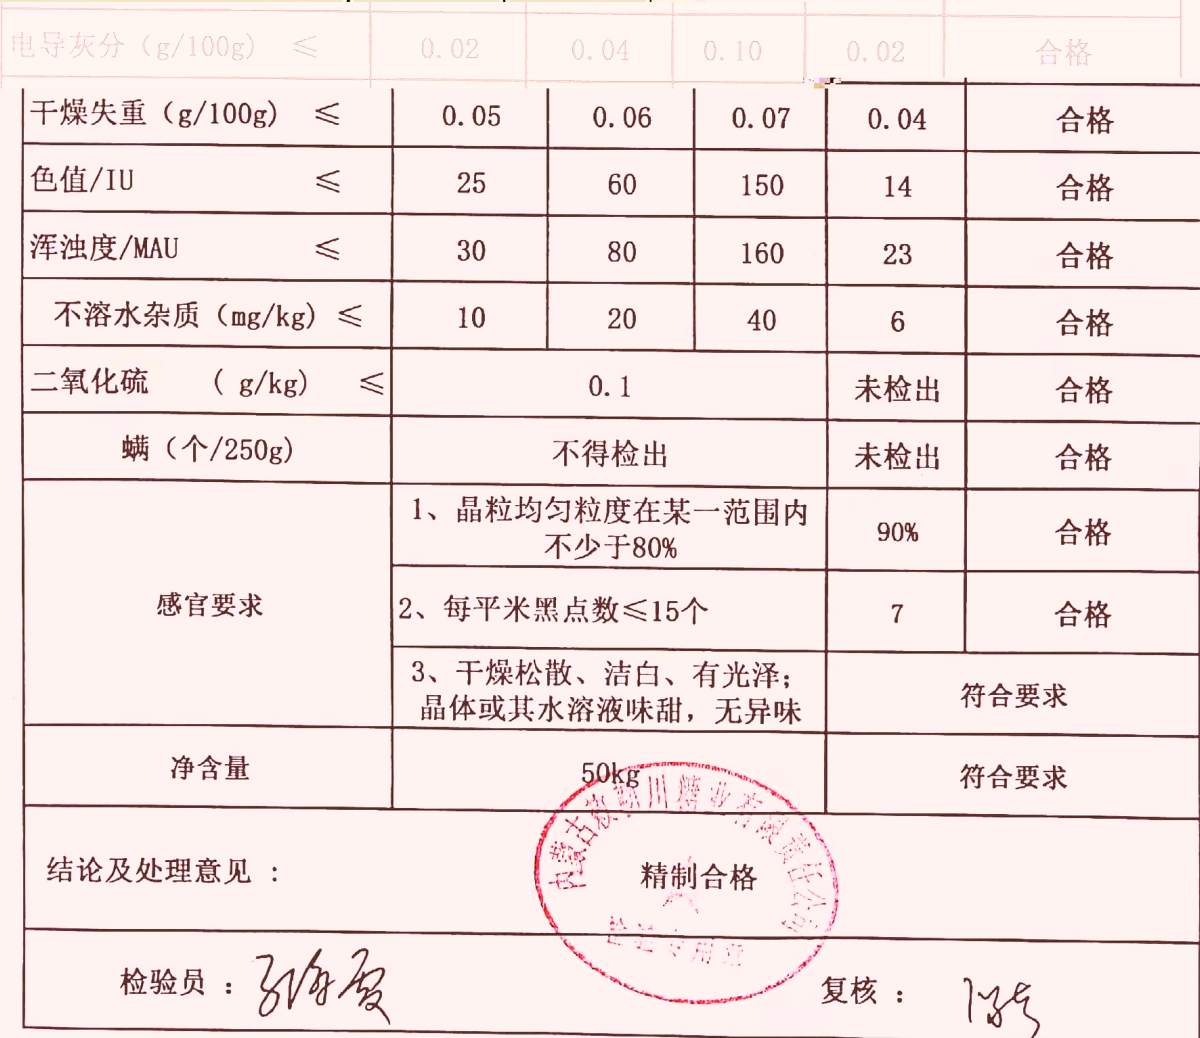 电导灰分（g/100g) ≤ 0.02 0.04 0.10 0.02 合格
干燥失重（g/100g) ≤ 0.05 0.06 0.07 0.04 合格
色值/IU ≤ 25 60 150 14 合格
浑浊度/MAU ≤ 30 80 160 23 合格
不溶水杂质（mg/kg) ≤ 10 20 40 6 合格
二氧化硫 ( g/kg) ≤ 0.1 未检出 合格
螨（个/250g) 不得检出 未检出 合格
感官要求
1、晶粒均匀粒度在某一范围内
不少于80%
90% 合格
2、每平米黑点数≤15个 7 合格
3、干燥松散、洁白、有光泽；
晶体或其水溶液味甜，无异味
符合要求
净含量 50kg 符合要求
结论及处理意见 : 精制合格
检验员 : 复核 :